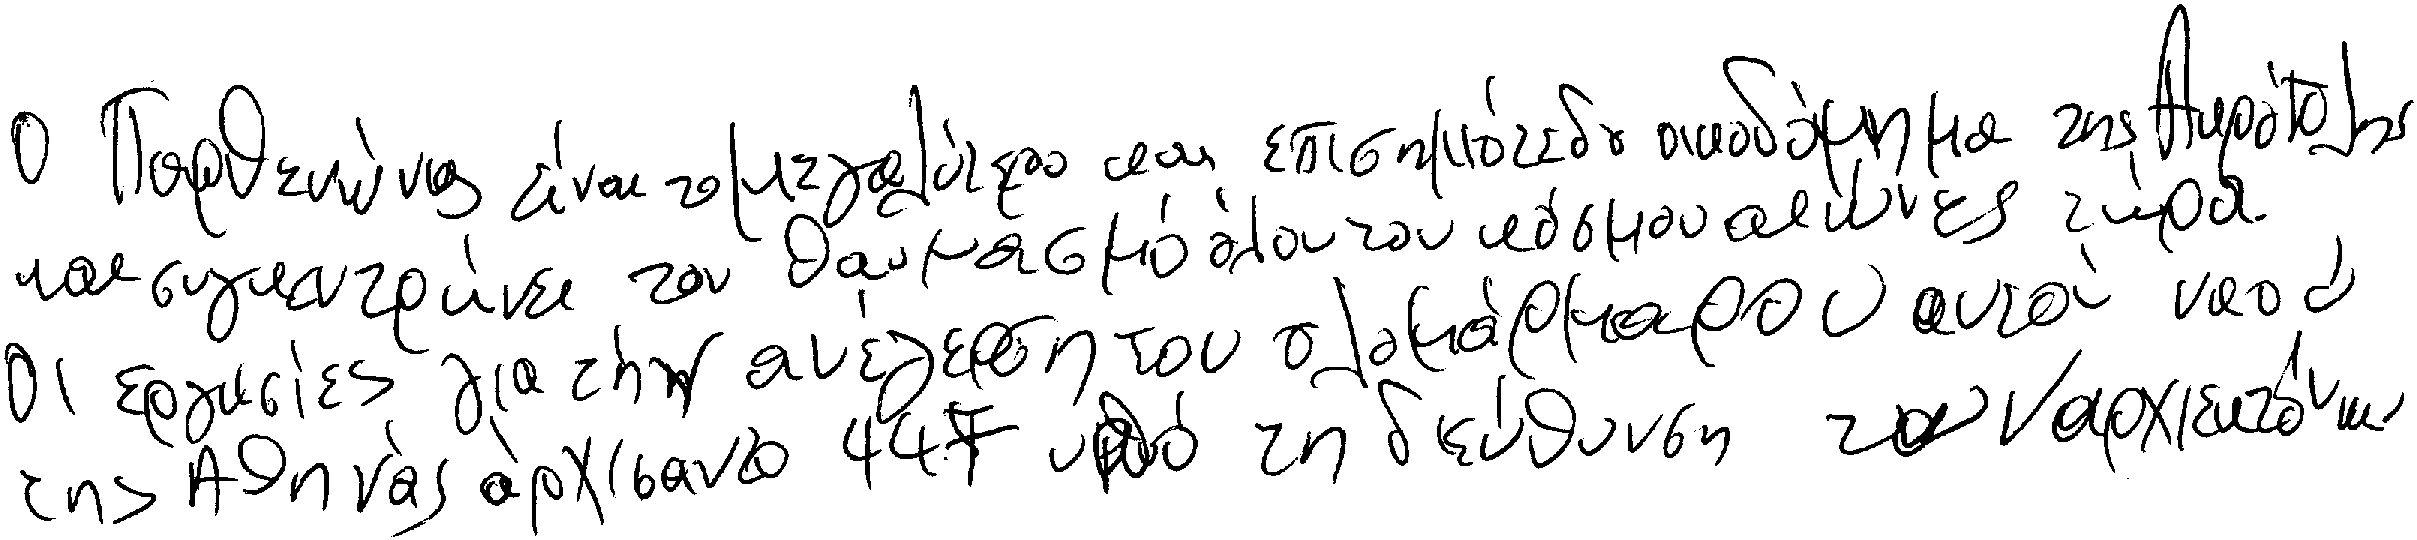 Ο Παρθενώνας είναι το μεγαλύτερο και επισημότεδο οικοδόμημα της Ακρόπολης
και συγκεντρώνει τον θαυμασμό όλου του κόσμου αιώνες τώρα.
Οι εργασίες για την ανέγερση του ολομάρμαρου αυτού ναού
της Αθηνάς άρχισαν το 447 υπό τη διεύθυνση των αρχιτεκτόνων